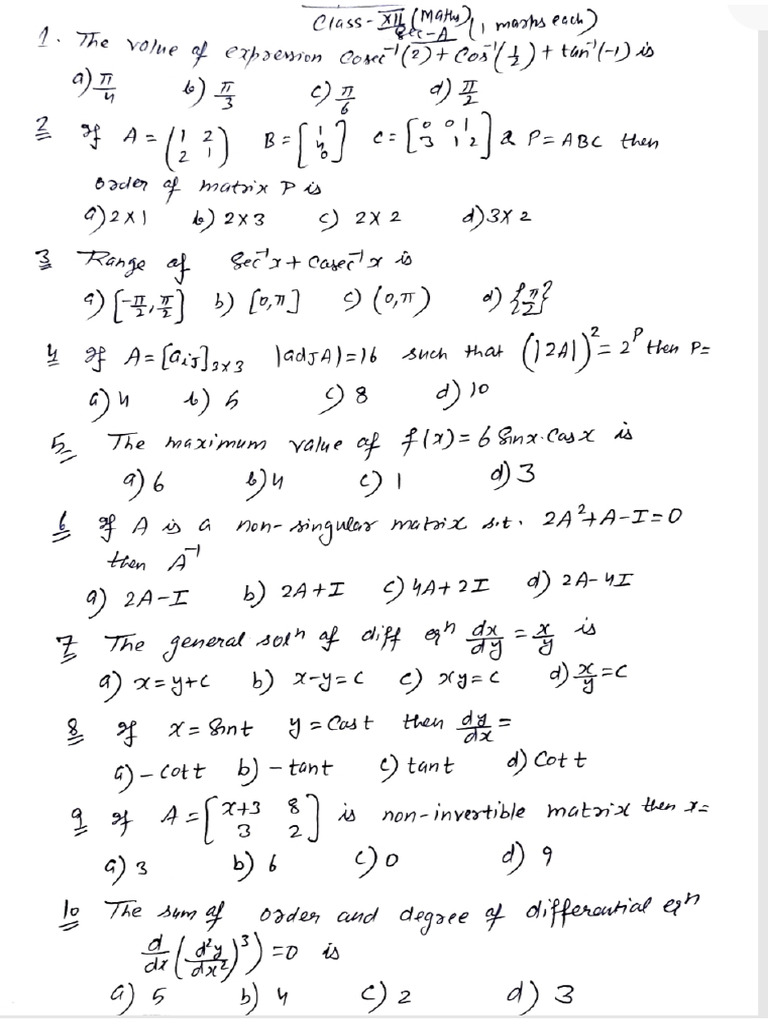 Class-XII (Maths)
Sec-A (1 marks each)
1. The value of expression Cosec⁻¹(2)+Cos⁻¹(1/2)+tan⁻¹(-1) is
a) π/4 b) π/3 c) π/6 d) π/2
2 If A = (1 2; 2 1) B = [1; 4; 0] C = [0 0 1; 3 1 2] & P = ABC then
order of matrix P is
a) 2×1 b) 2×3 c) 2×2 d) 3×2
3 Range of Sec⁻¹x + Cosec⁻¹x is
a) [-π/2, π/2] b) [0,π] c) (0,π) d) {π/2}
4 If A = [aij]3×3 |adjA|=16 such that (|2A|)² = 2ᴾ then P=
a) 4 b) 5 c) 8 d) 10
5 The maximum value of f(x) = 6 Sinx.Cosx is
a) 6 b) 4 c) 1 d) 3
6 If A is a non-singular matrix s.t. 2A²+A-I=0
then A⁻¹
a) 2A-I b) 2A+I c) 4A+2I d) 2A-4I
7 The general solⁿ of diff eqⁿ dx/dy = x/y is
a) x=y+c b) x-y=c c) xy=c d) x/y=c
8 If x = Sint y = Cost then dy/dx =
a) -cott b) -tant c) tant d) Cott
9 If A = [x+3 8; 3 2] is non-invertible matrix then x=
a) 3 b) 6 c) 0 d) 9
10 The sum of order and degree of differential eqⁿ
d/dx((d²y/dx²)³) = 0 is
a) 5 b) 4 c) 2 d) 3